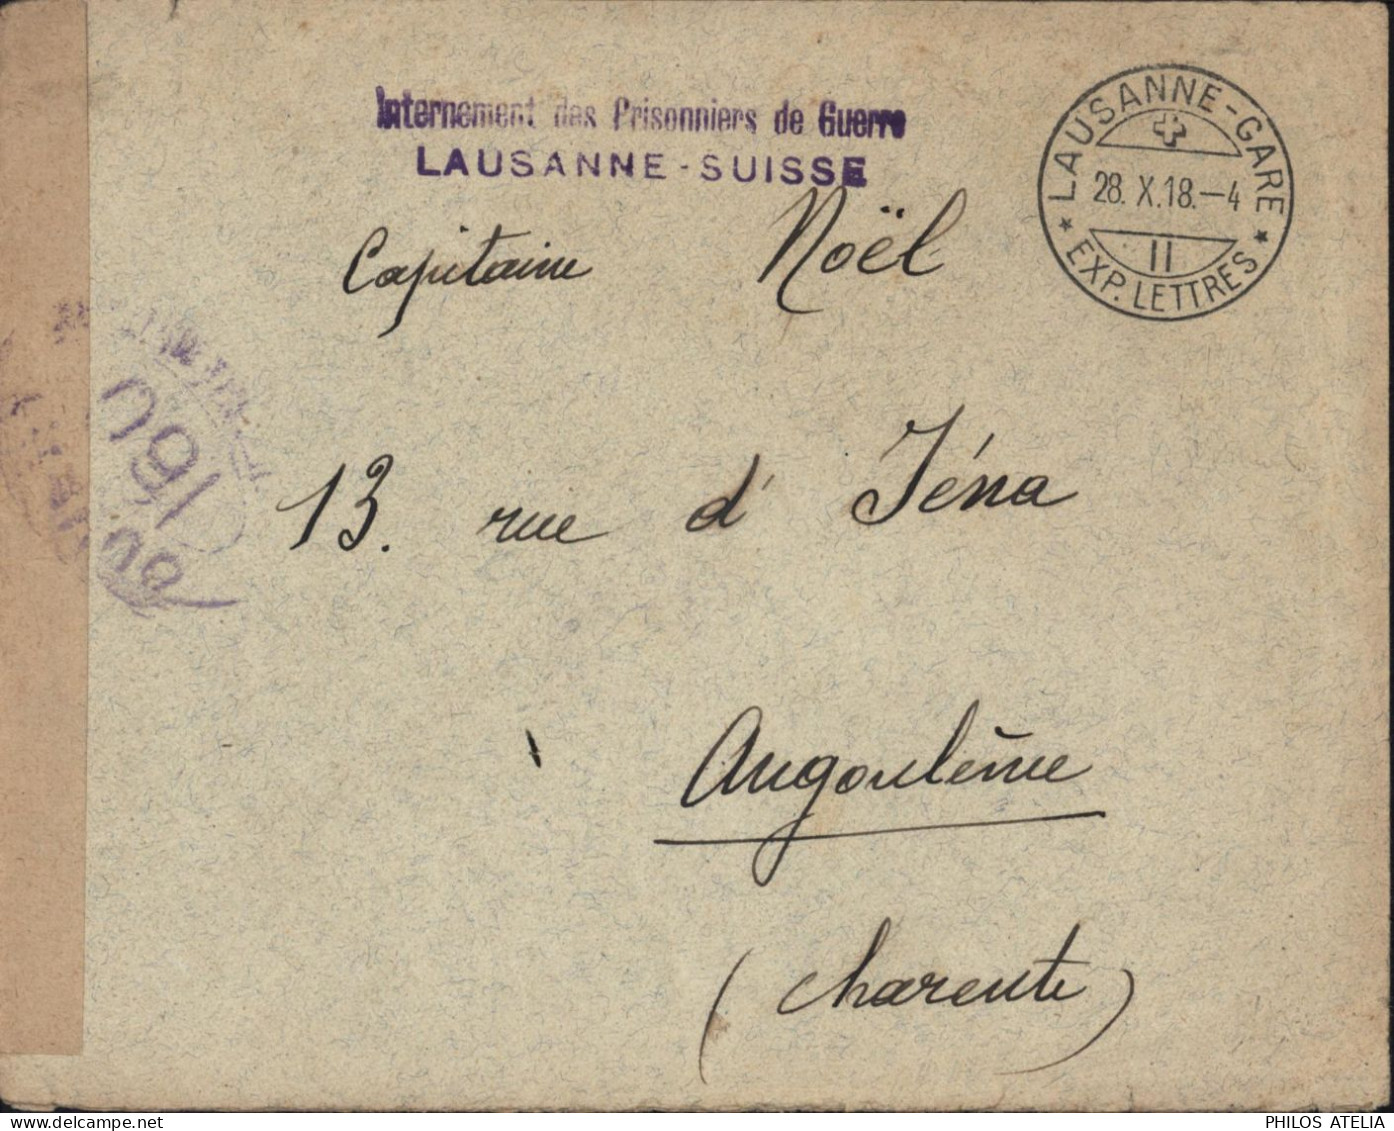 Internement des Prisonniers de Guerre
LAUSANNE-SUISSE
LAUSANNE-GARE
28. X.18.-4
II
* EXP. LETTRES *
Capitaine Noël
13. rue d' Iéna
Angoulême
(Charente)
PHILOS ATELIA